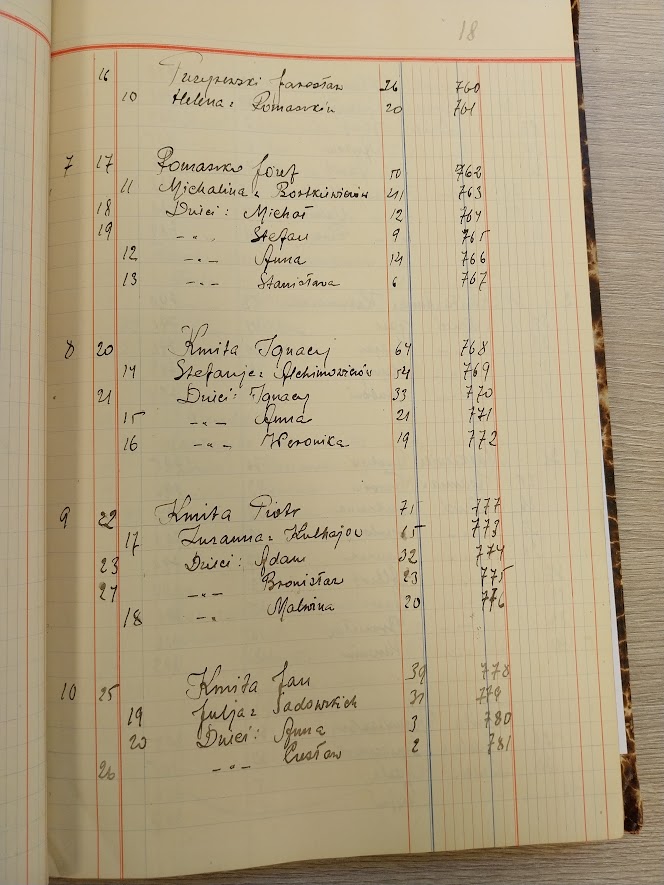 18
16 Puczyrewski Jarosław 26 760
10 Helena z Romaszków 20 761
7 17 Romaszko Józef 50 762
11 Michalina z Bortkiewiczów 41 763
18 Dzieci: Michał 12 764
19 -"- Stefan 9 765
12 -"- Anna 14 766
13 -"- Stanisława 6 767
8 20 Kmita Ignacy 64 768
14 Stefanja z Alchimowiczów 54 769
21 Dzieci: Ignacy 33 770
15 -"- Anna 21 771
16 -"- Weronika 19 772
9 22 Kmita Piotr 71 777
17 Zuzanna z 65 773
23 Dzieci: Adam 32 774
24 -"- Bronisław 23 775
18 -"- Malwina 20 776
10 25 Kmita Jan 39 778
19 Julja z Sadowskich 31 779
20 Dzieci: Anna 3 780
26 -"- Czesław 2 781